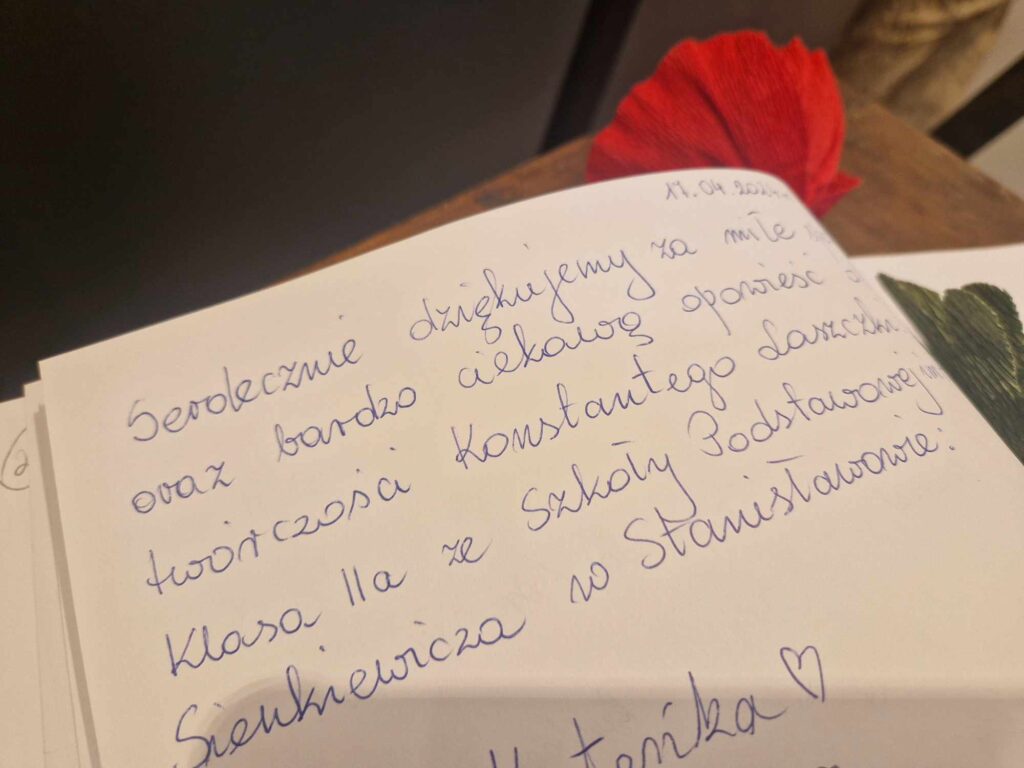 17.04.2024
Serdecznie dziękujemy za miłe
oraz bardzo ciekawą opowieść o
twórczości Konstantego Laszczki
Klasa IIa ze Szkoły Podstawowej im
Sienkiewicza w Stanisławowie: